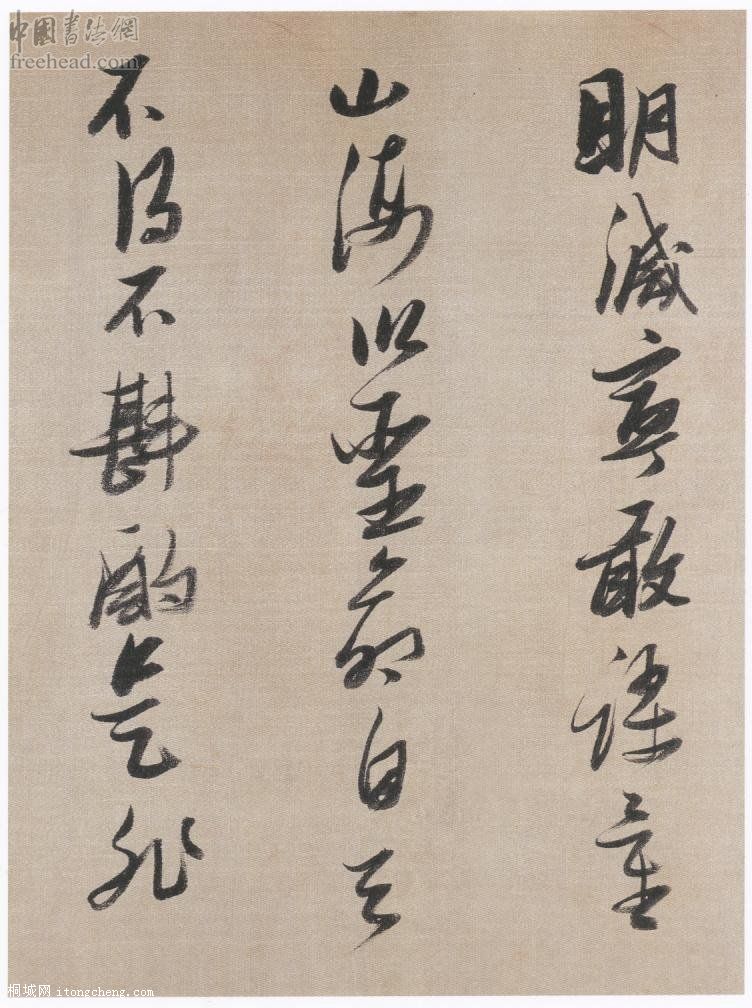 中國書法網
freehead.com
明減寧敢量
山海以聖命自天
不得不斟酌非
桐城网 itongcheng.com